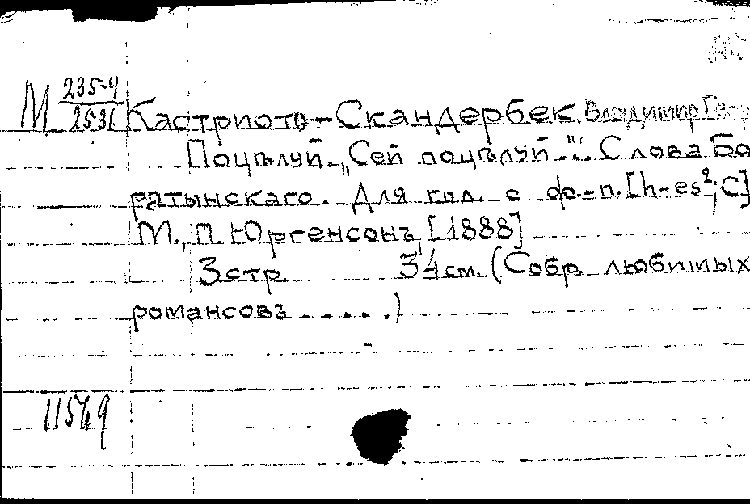 М 235-4
2531 Кастриото-Скандербек Владимир
Поцѣлуй „Сей поцѣлуй..." Слова Бо
ратынскаго. Для гол. с ф-п. [h-es²; C]
М., П. Юргенсонъ, [1888]
3 стр. 34 см. (Собр. любимых
романсовъ .....)